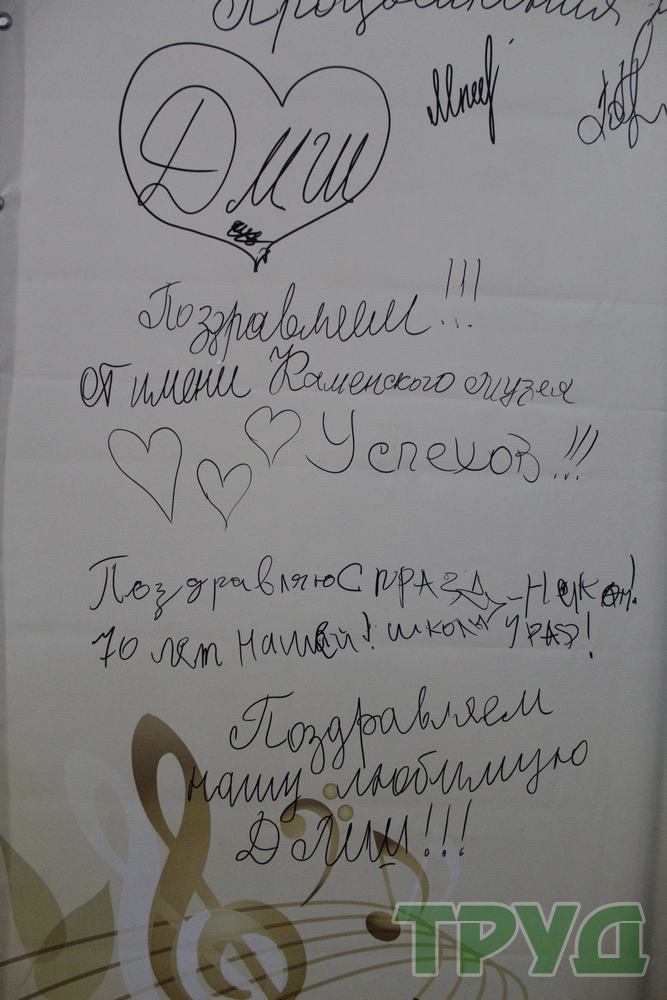 Процветания
ДМШ
Поздравляем!!!
от имени Каменского музея
Успехов!!!
Поздравляю С ПРАЗД-НИКОМ!
70 лет нашей! школы УРАЯ!
Поздравляем
нашу любимую
ДМШ!!!
ТРУД